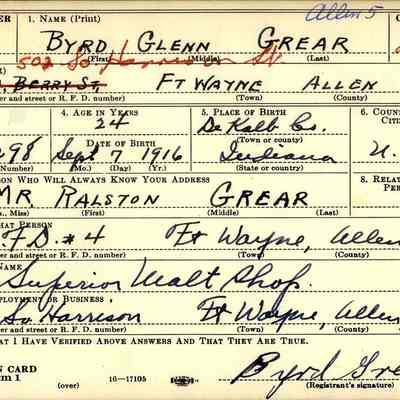 Allen 5
ER 1. NAME (Print)
BYRD GLENN GREAR
502 So. Harrison St
(First) (Middle) (Last)
BERRY ST. FT WAYNE ALLEN
er and street or R. F. D. number) (Town) (County)
4. AGE IN YEARS 5. PLACE OF BIRTH 6. COUN
24 De Kalb Co. CITI
DATE OF BIRTH (Town or county)
298 Sept 7 1916 Indiana U.
(Mo.) (Day) (Yr.) (State or country)
SON WHO WILL ALWAYS KNOW YOUR ADDRESS 8. RELATI
MR. RALSTON GREAR
., Miss) (First) (Middle) (Last)
HAT PERSON
F.D. #4 Ft Wayne, Allen
er and street or R. F. D. number) (Town) (County)
NAME
Superior Malt Shop.
PLOYMENT OR BUSINESS
So Harrison Ft Wayne, Allen
er and street or R. F. D. number) (Town) (County)
AT I HAVE VERIFIED ABOVE ANSWERS AND THAT THEY ARE TRUE.
N CARD
rm 1 (over) 16—17105
Byrd Gre
(Registrant's signature)